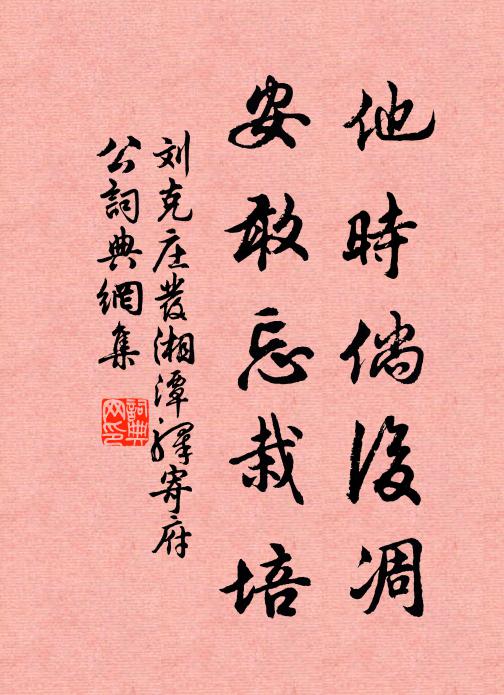 他時倘後凋
安敢忘栽培
刘克庄發湘潭驛寄府
公詞典網集
詞典
网印